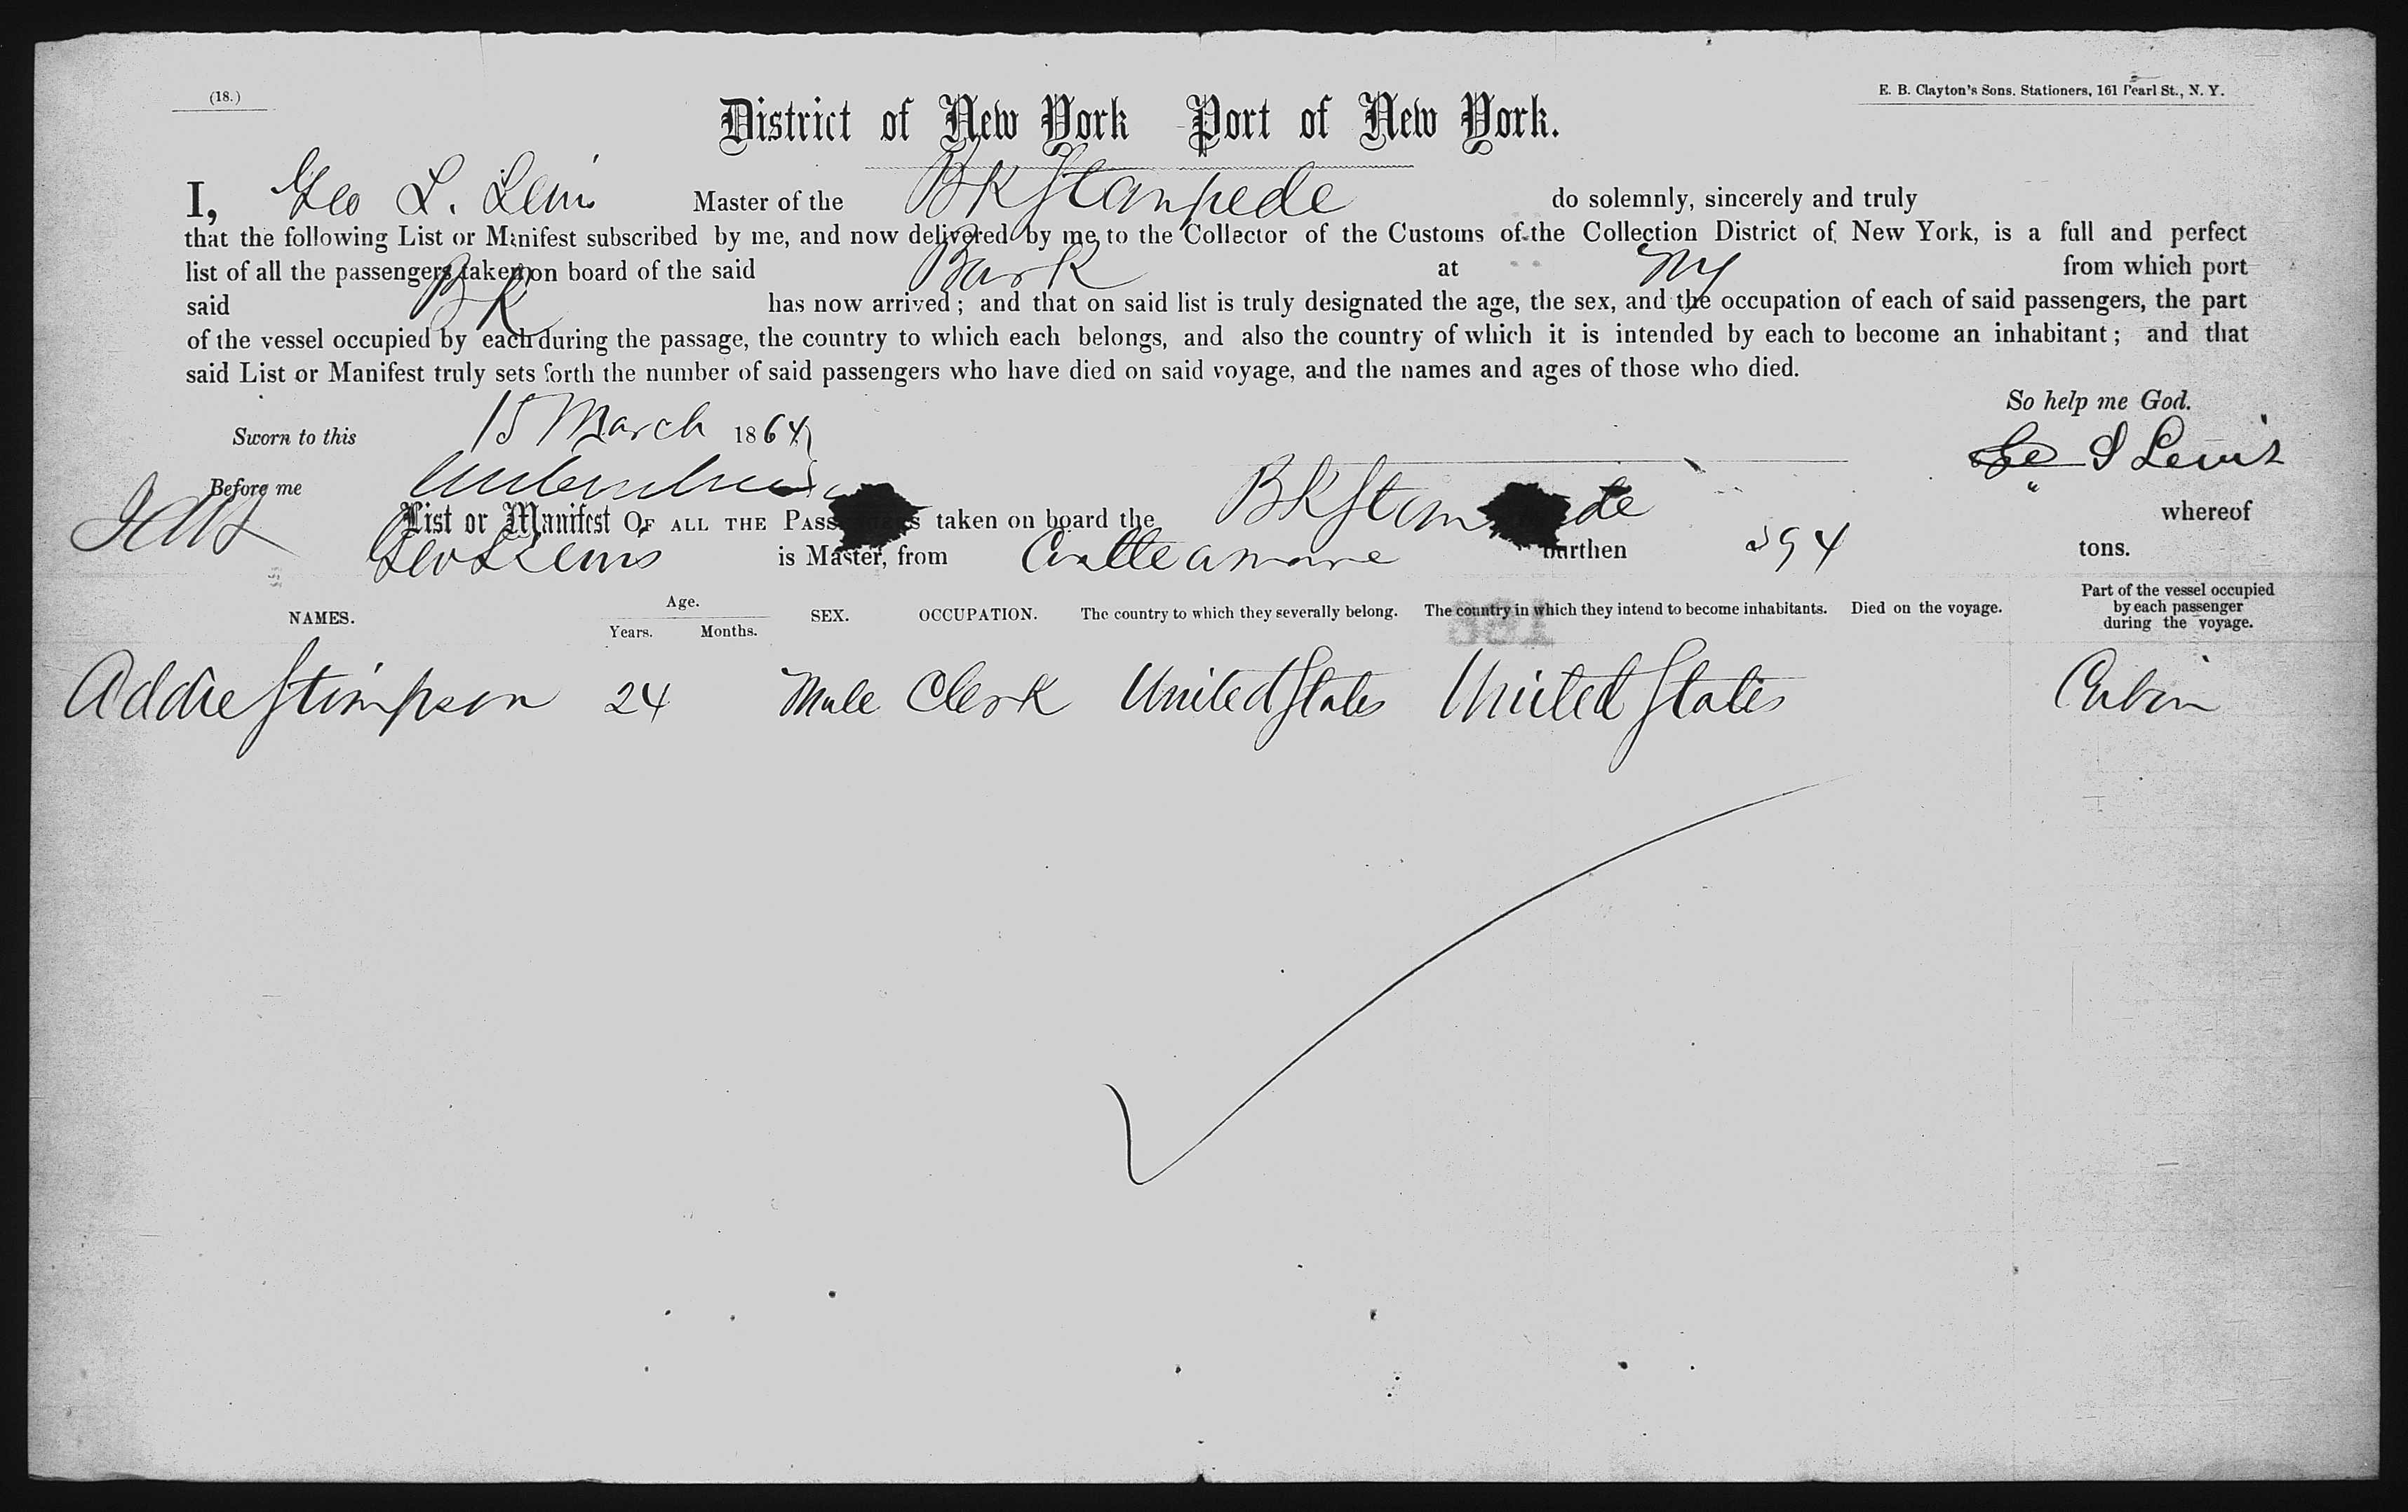 (18.)
E. B. Clayton's Sons. Stationers, 161 Pearl St., N. Y.
District of New York Port of New York.
I, Geo L. Lewis Master of the BK Stampede do solemnly, sincerely and truly
that the following List or Manifest subscribed by me, and now delivered by me to the Collector of the Customs of the Collection District of New York, is a full and perfect
list of all the passengers taken on board of the said Bark at NY from which port
said BK has now arrived; and that on said list is truly designated the age, the sex, and the occupation of each of said passengers, the part
of the vessel occupied by each during the passage, the country to which each belongs, and also the country of which it is intended by each to become an inhabitant; and that
said List or Manifest truly sets forth the number of said passengers who have died on said voyage, and the names and ages of those who died.
So help me God.
Sworn to this 15 March 1864
Geo L Lewis
Before me
List or Manifest OF ALL THE PASSENGERS taken on board the BK Stampede whereof
Geo L Lewis is Master, from burthen 394 tons.
NAMES. Age. Years. Months. SEX. OCCUPATION. The country to which they severally belong. The country in which they intend to become inhabitants. Died on the voyage. Part of the vessel occupied by each passenger during the voyage.
Addie Stimpson 24 Male Clerk United States United States Cabin